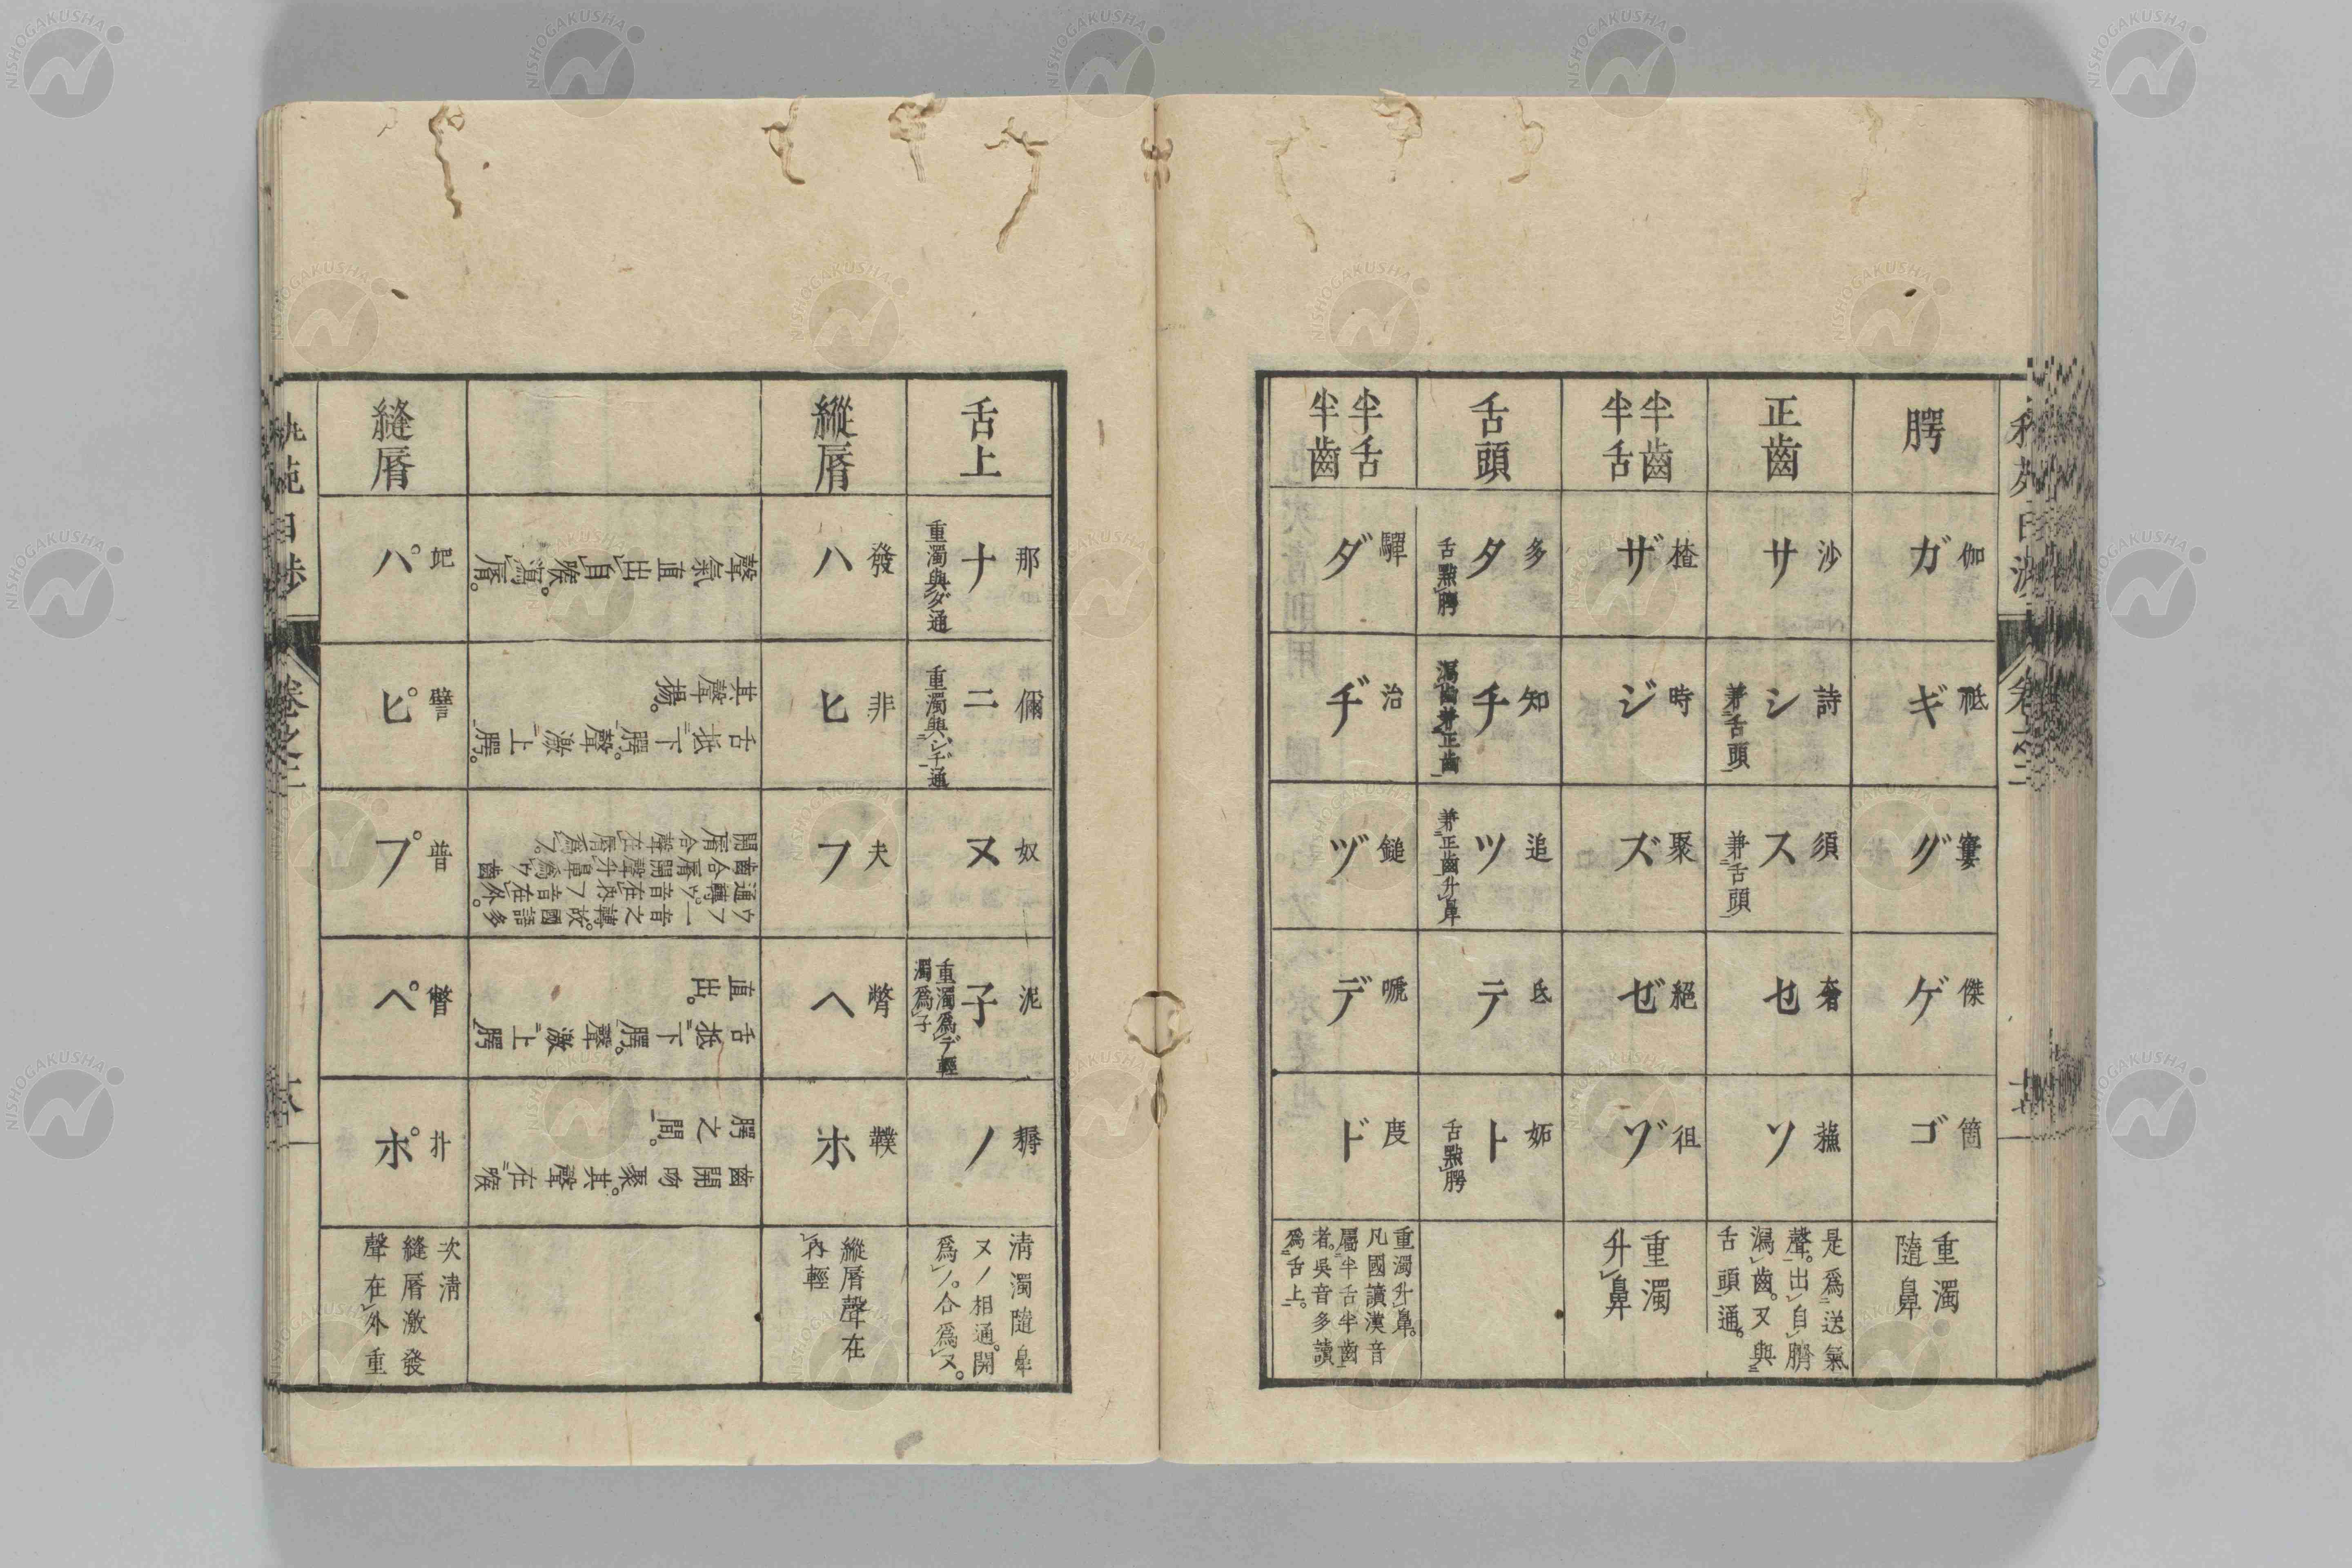 腭
伽
ガ
祗
ギ
窶
グ
傑
ゲ
箇
ゴ
重濁
隨鼻
正齒
沙
サ
詩
シ
兼舌頭
須
ス
兼舌頭
奢
セ
蘓
ソ
是爲送氣
聲。出自腭
濕齒。又與
舌頭通。
半齒
半舌
楂
ザ
時
ジ
聚
ズ
絕
ゼ
徂
ゾ
重濁
升鼻
舌頭
多
タ
舌點腭
知
チ
追
ツ
兼正齒升鼻
氐
テ
妬
ト
舌點腭
半舌
半齒
驒
ダ
治
ヂ
鎚
ヅ
嗁
デ
度
ド
重濁升鼻。
凡國讀漢音
屬半舌半齒
者。吳音多讀
爲舌上。
舌上
那
ナ
重濁與ダ通
儞
ニ
重濁與ジヂ通
奴
ヌ
泥
子
重濁爲デ輕
濁爲子
耨
ノ
淸濁隨鼻
ヌノ相通。開
爲ノ。合爲ヌ。
縱脣
發
ハ
非
ヒ
夫
フ
弊
ヘ
轐
ホ
縱脣聲在
內輕
聲氣直出自喉
舌抵下腭。聲激上腭。
其聲揚。
舌抵下腭。聲激上腭
直出。
齒開吻聚。其聲在喉
腭之間。
縫脣
妑
パ
譬
ピ
普
プ
瞥
ペ
圤
ポ
次淸
縫脣激發
聲在外重